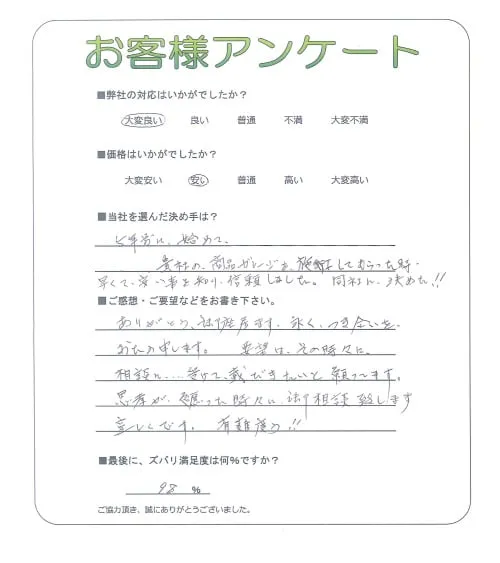 お客様アンケート
■弊社の対応はいかがでしたか?
大変良い 良い 普通 不満 大変不満
■価格はいかがでしたか?
大変安い 安い 普通 高い 大変高い
■当社を選んだ決め手は?
5年前に、始めて、
貴社の、商品ガレージを、施工してもらった時、
早くて、安い事を知り、信頼しました。 同社に、決めた!!
■ご感想・ご要望などをお書き下さい。
ありがとう、御座居ます、永く、つき合いを、
お願い申します。 要望は、その時々に、
相談に…受けて、戴だきたいと願ってます。
思考が、 った時々に、御相談致します
宜しくです。 有難度う!!
■最後に、ズバリ満足度は何%ですか?
98 %
ご協力頂き、誠にありがとうございました。